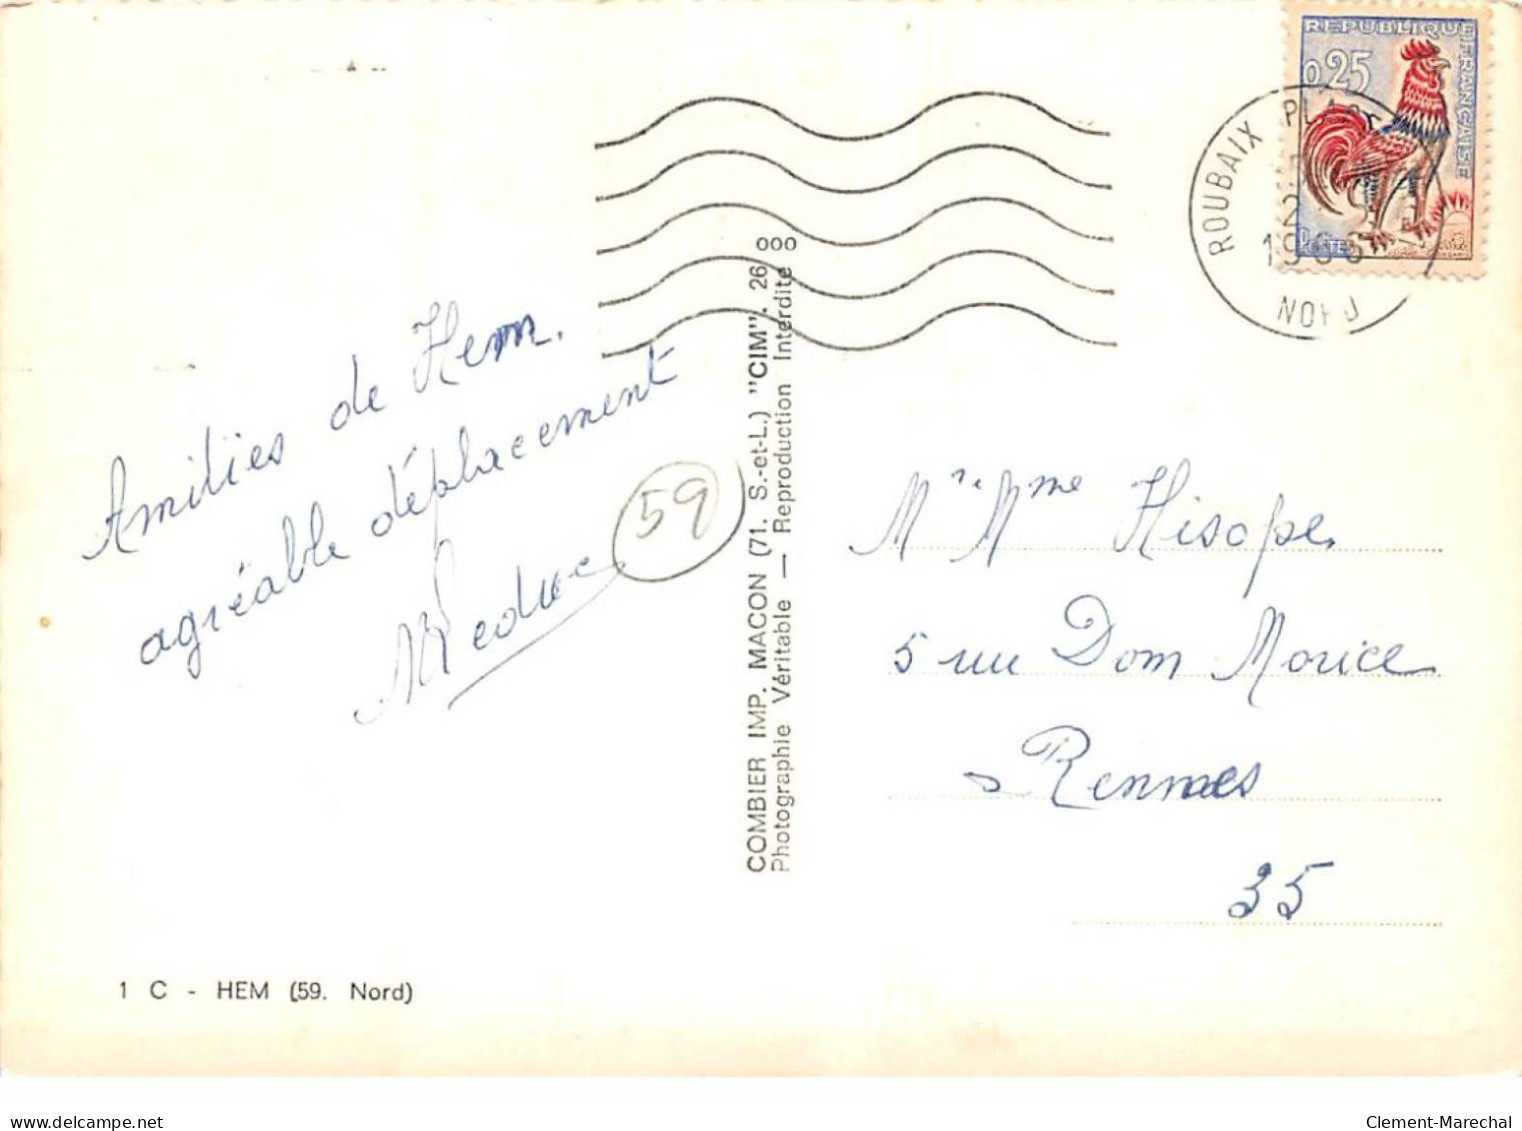 REPUBLIQUE FRANÇAISE
0,25
POSTES
ROUBAIX
NORD
Amitiés de Hem.
agréable déplacement
59
COMBIER IMP. MACON (71. S.-et-L.) "CIM". 26 000
Photographie Véritable — Reproduction Interdite
Mr Mme
5 rue Dom Morice
Rennes
35
1 C - HEM (59. Nord)
www.delcampe.net
Clement-Marechal